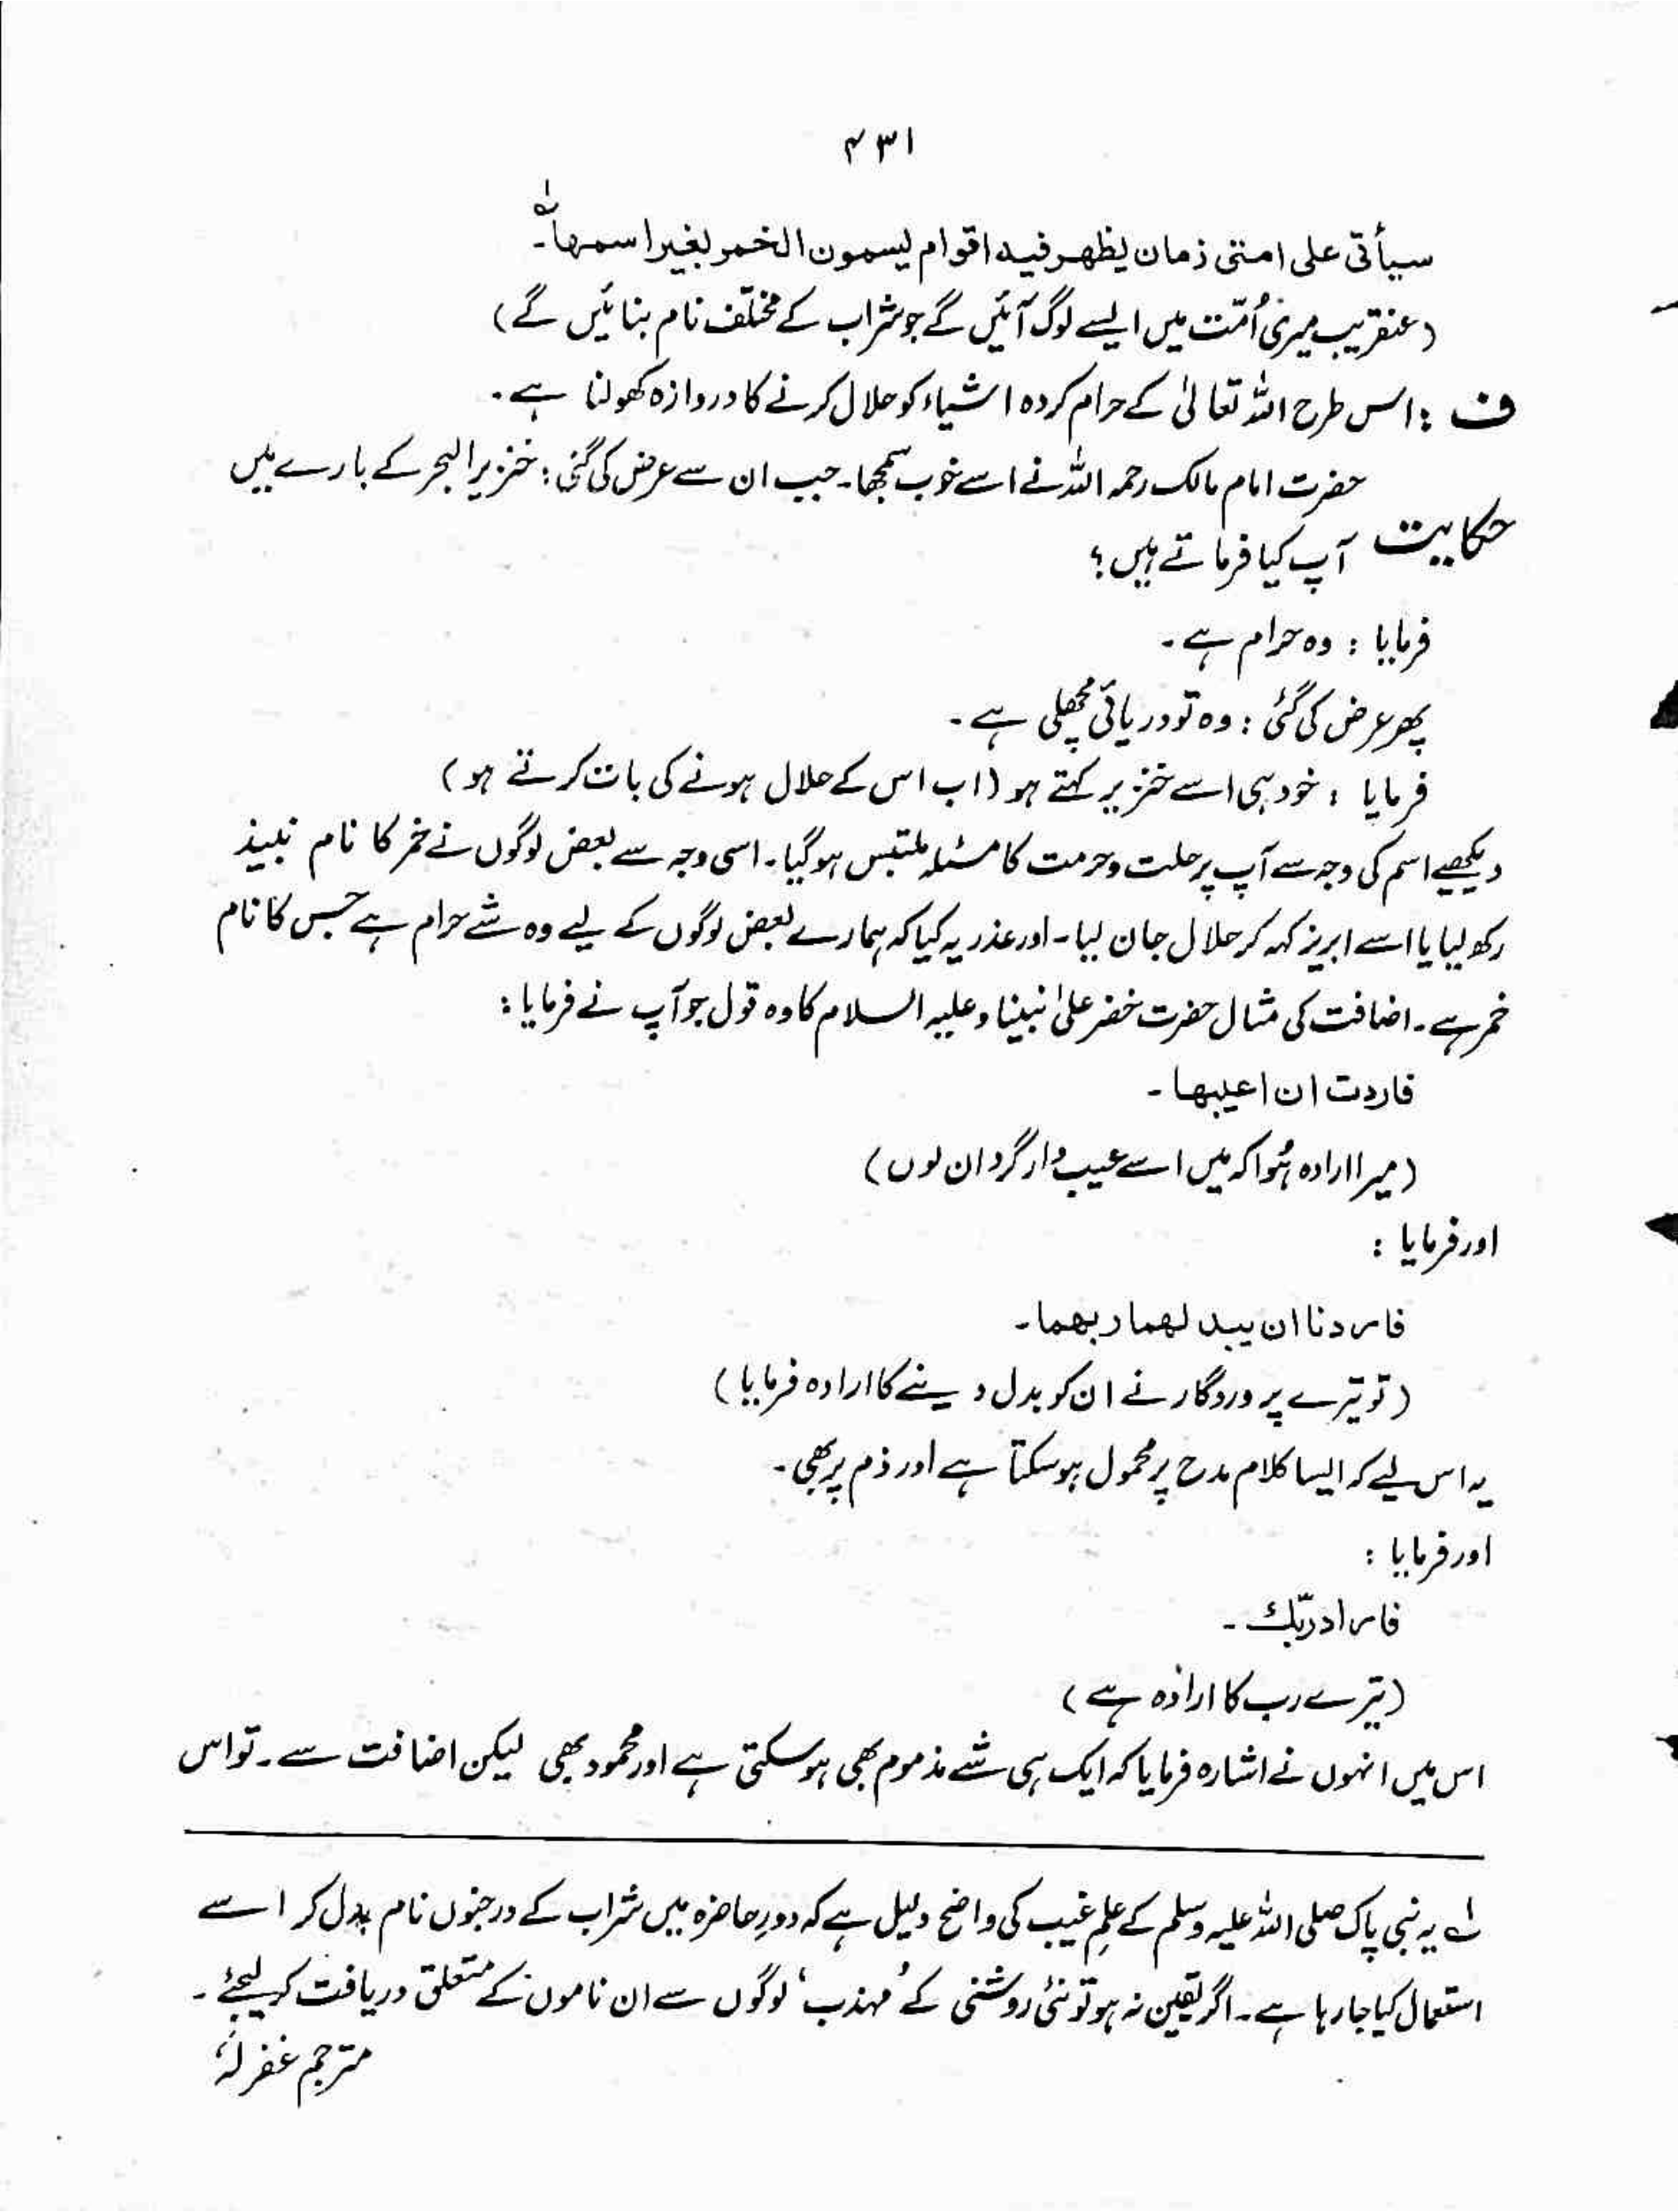 ۴۳۱
سیأتی علی امتی زمان یظهر فیه اقوام یسمون الخمر بغیر اسمها۔ ؂۱
(عنقریب میری اُمّت میں ایسے لوگ آئیں گے جو شراب کے مختلف نام بنائیں گے)
ف : اس طرح اللہ تعالیٰ کے حرام کردہ اشیاء کو حلال کرنے کا دروازہ کھولنا ہے۔
حضرت امام مالک رحمہ اللہ نے اسے خوب سمجھا۔ جب ان سے عرض کی گئی : خنزیر البحر کے بارے میں
حکایت آپ کیا فرماتے ہیں؟
فرمایا : وہ حرام ہے۔
پھر عرض کی گئی : وہ تو دریائی مچھلی ہے۔
فرمایا : خود ہی اسے خنزیر کہتے ہو (اب اس کے حلال ہونے کی بات کرتے ہو)
دیکھیے اسم کی وجہ سے آپ پر حلت و حرمت کا مسئلہ ملتبس ہوگیا۔ اسی وجہ سے بعض لوگوں نے خمر کا نام نبیذ
رکھ لیا یا اسے ابریز کہہ کر حلال جان لیا۔ اور عذر یہ کیا کہ ہمارے بعض لوگوں کے لیے وہ شے حرام ہے جس کا نام
خمر ہے۔ اضافت کی مثال حضرت خضر علیٰ نبینا وعلیہ السلام کا وہ قول جو آپ نے فرمایا :
فاردت ان اعیبها۔
(میرا ارادہ ہُوا کہ میں اسے عیب دار گردان لوں)
اور فرمایا :
فاردنا ان یبدلهما ربهما۔
(تو تیرے پروردگار نے ان کو بدل دینے کا ارادہ فرمایا)
یہ اس لیے کہ ایسا کلام مدح پر محمول ہوسکتا ہے اور ذم پر بھی۔
اور فرمایا :
فاراد ربّك۔
(تیرے رب کا ارادہ ہے)
اس میں انہوں نے اشارہ فرمایا کہ ایک ہی شے مذموم بھی ہوسکتی ہے اور محمود بھی لیکن اضافت سے۔ تو اس
؂۱ یہ نبی پاک صلی اللہ علیہ وسلم کے علمِ غیب کی واضح دلیل ہے کہ دورِ حاضرہ میں شراب کے درجنوں نام بدل کر اسے
استعمال کیا جارہا ہے۔ اگر یقین نہ ہو تو نئی روشنی کے ’مہذب‘ لوگوں سے ان ناموں کے متعلق دریافت کرلیجئے۔
مترجم غفرلہٗ